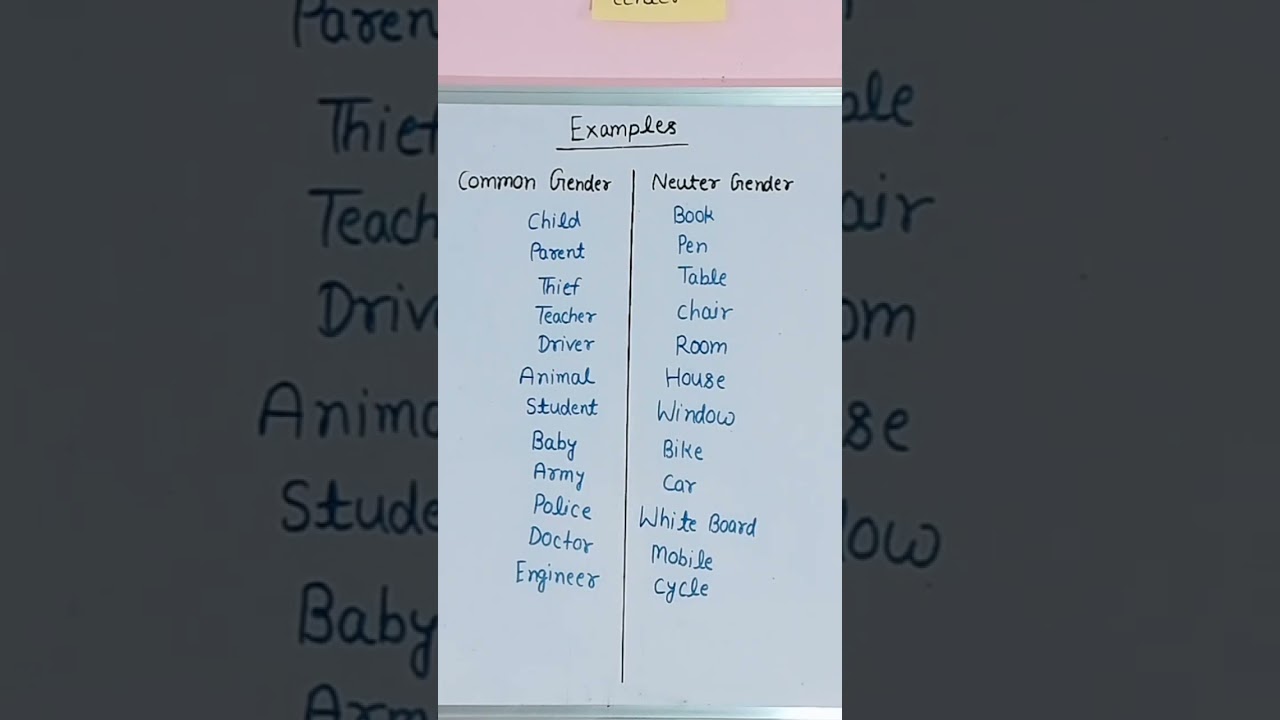 Examples
Common Gender Neuter Gender
Child Book
Parent Pen
Thief Table
Teacher Chair
Driver Room
Animal House
Student Window
Baby Bike
Army Car
Police White Board
Doctor Mobile
Engineer Cycle